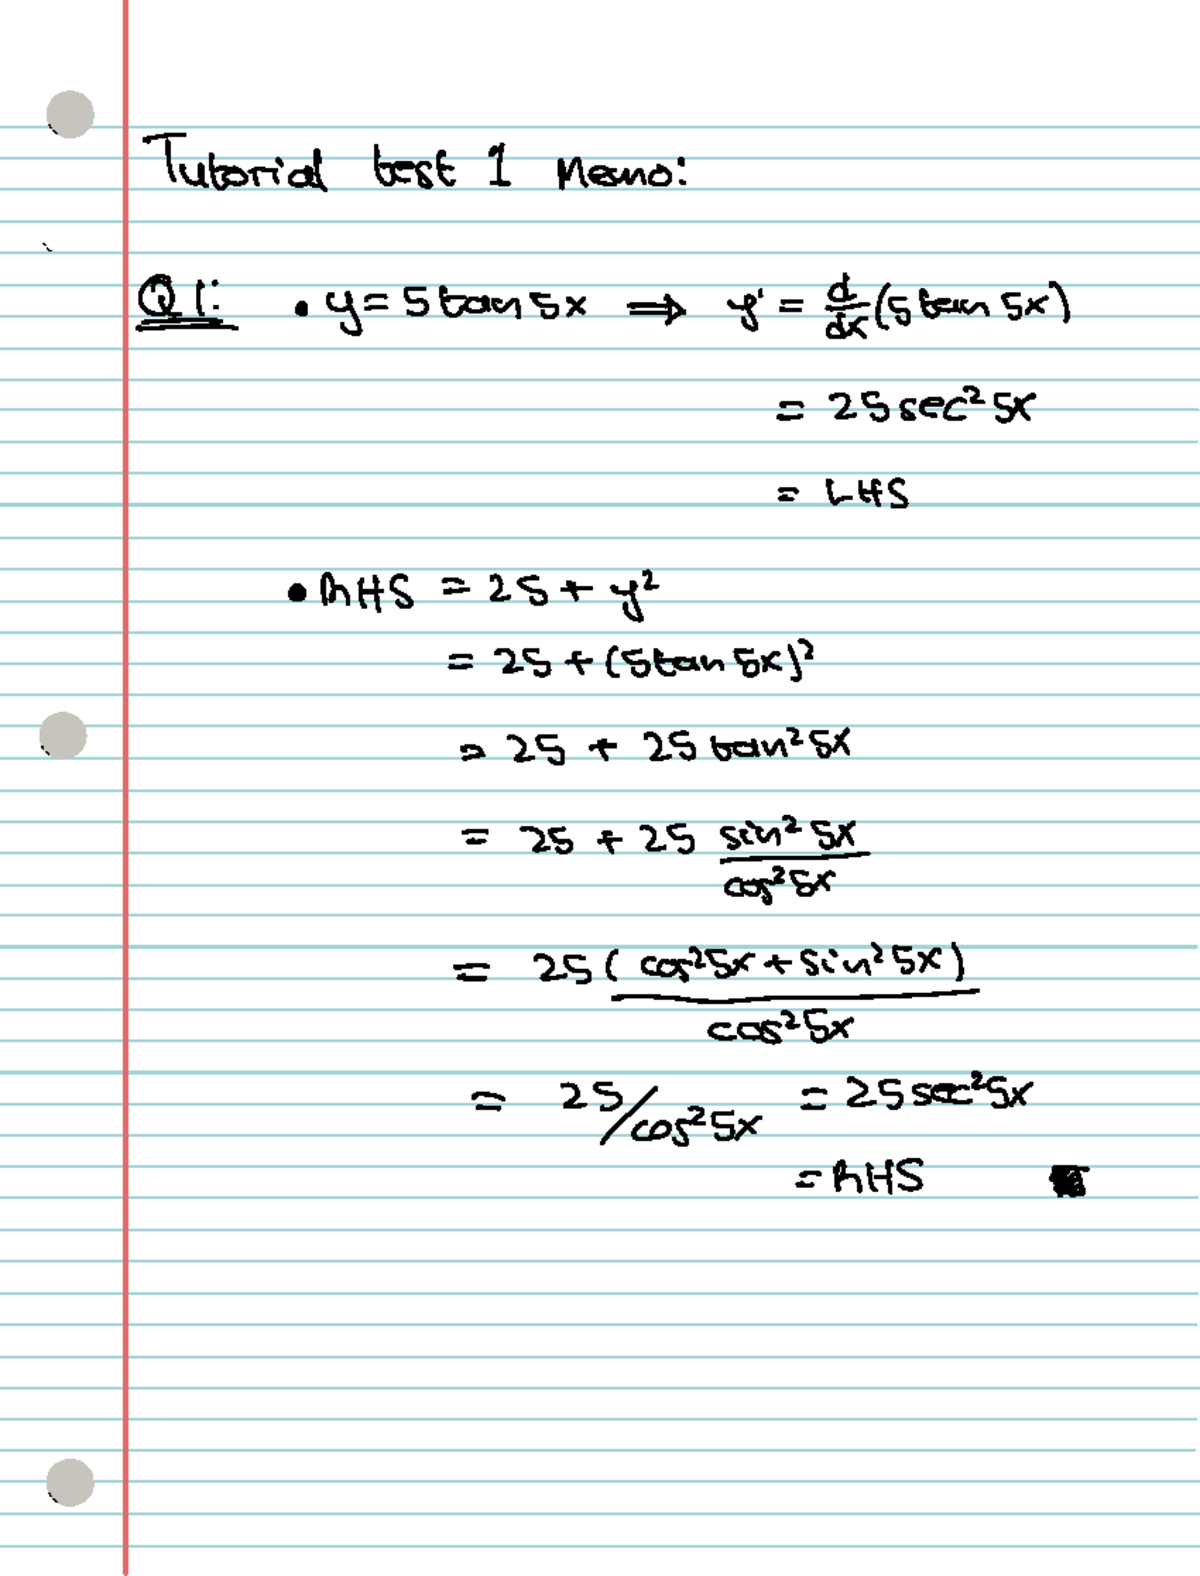 Tutorial test 1 Memo:
Q1: • y = 5 tan 5x ⟹ y' = d/dx (5 tan 5x)
= 25 sec² 5x
= LHS
• RHS = 25 + y²
= 25 + (5 tan 5x)²
= 25 + 25 tan² 5x
= 25 + 25 sin² 5x / cos² 5x
= 25 ( cos² 5x + sin² 5x ) / cos² 5x
= 25 / cos² 5x = 25 sec² 5x
= RHS